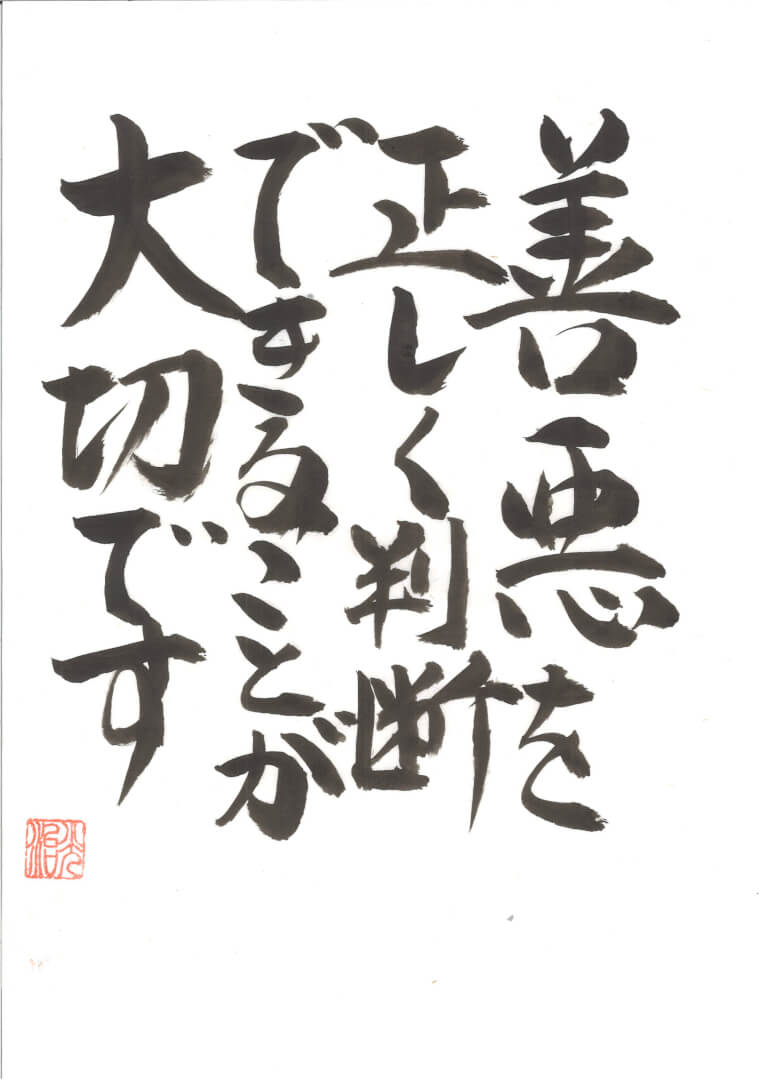 善悪を
正しく判断
できることが
大切です